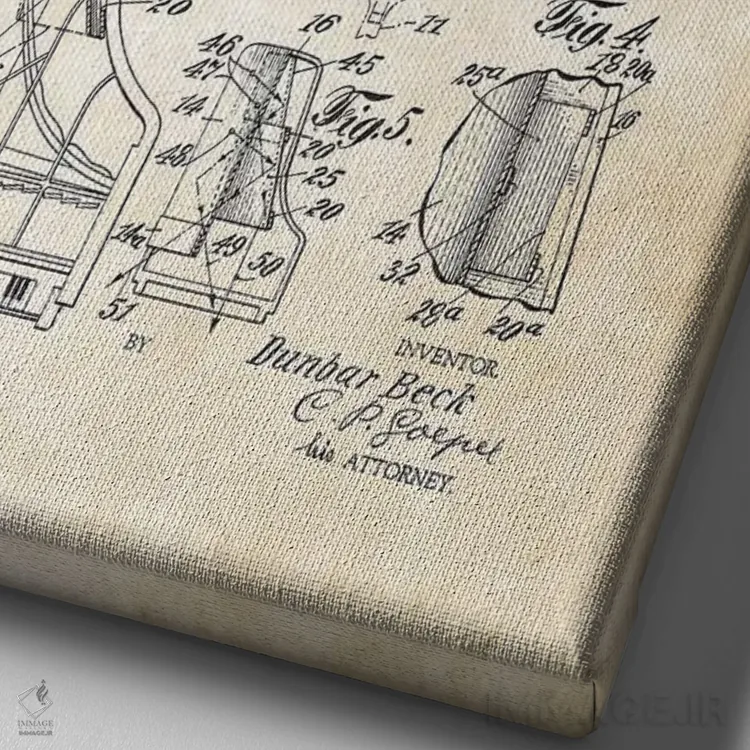 20
11
Fig. 4.
16
46
45
47
25a
18
20a
16
14
Fig. 5.
20
48
25
20
14a
49
50
14
32
51
28a
20a
BY
INVENTOR
Dunbar Beck
C. P. Goepel
his ATTORNEY.
IMMAGE
IMMAGE.IR
IMMAGE.IR